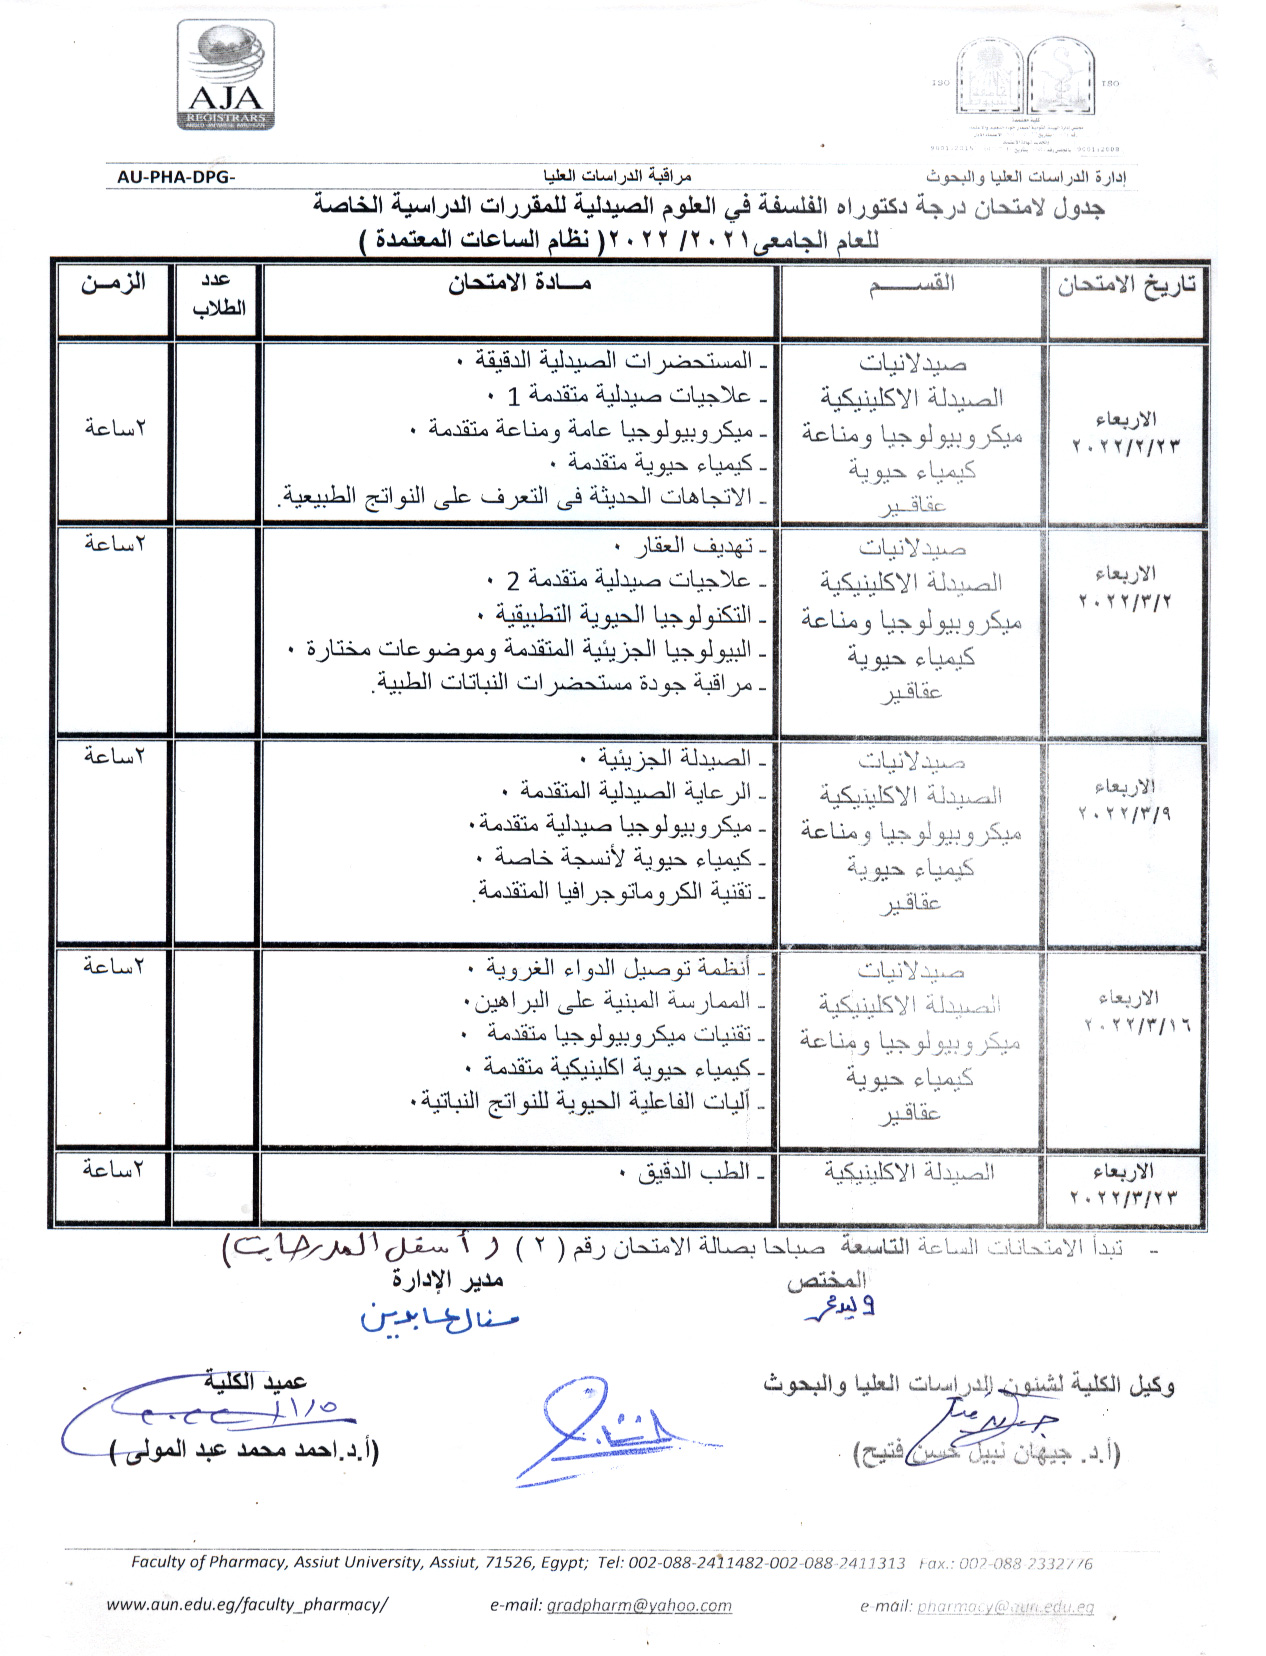 AJA
REGISTRARS
ANGLO JAPANESE AMERICAN
ISO
ISO
إدارة الدراسات العليا والبحوث
مراقبة الدراسات العليا
AU-PHA-DPG-
جدول لامتحان درجة دكتوراه الفلسفة في العلوم الصيدلية للمقررات الدراسية الخاصة
للعام الجامعى٢٠٢١/ ٢٠٢٢( نظام الساعات المعتمدة )
تاريخ الامتحان
القســـم
مـــادة الامتحان
عدد
الطلاب
الزمـن
الاربعاء
٢٠٢٢/٢/٢٣
صيدلانيات
الصيدلة الاكلينيكية
ميكروبيولوجيا ومناعة
كيمياء حيوية
عقاقير
- المستحضرات الصيدلية الدقيقة ٠
- علاجيات صيدلية متقدمة 1 ٠
- ميكروبيولوجيا عامة ومناعة متقدمة ٠
- كيمياء حيوية متقدمة ٠
- الاتجاهات الحديثة فى التعرف على النواتج الطبيعية.
٢ساعة
الاربعاء
٢٠٢٢/٣/٢
صيدلانيات
الصيدلة الاكلينيكية
ميكروبيولوجيا ومناعة
كيمياء حيوية
عقاقير
- تهديف العقار ٠
- علاجيات صيدلية متقدمة 2 ٠
- التكنولوجيا الحيوية التطبيقية ٠
- البيولوجيا الجزيئية المتقدمة وموضوعات مختارة ٠
- مراقبة جودة مستحضرات النباتات الطبية.
٢ساعة
الاربعاء
٢٠٢٢/٣/٩
صيدلانيات
الصيدلة الاكلينيكية
ميكروبيولوجيا ومناعة
كيمياء حيوية
عقاقير
- الصيدلة الجزيئية ٠
- الرعاية الصيدلية المتقدمة ٠
- ميكروبيولوجيا صيدلية متقدمة٠
- كيمياء حيوية لأنسجة خاصة ٠
- تقنية الكروماتوجرافيا المتقدمة.
٢ساعة
الاربعاء
٢٠٢٢/٣/١٦
صيدلانيات
الصيدلة الاكلينيكية
ميكروبيولوجيا ومناعة
كيمياء حيوية
عقاقير
- أنظمة توصيل الدواء الغروية ٠
- الممارسة المبنية على البراهين٠
- تقنيات ميكروبيولوجيا متقدمة ٠
- كيمياء حيوية اكلينيكية متقدمة ٠
- آليات الفاعلية الحيوية للنواتج النباتية٠
٢ساعة
الاربعاء
٢٠٢٢/٣/٢٣
الصيدلة الاكلينيكية
- الطب الدقيق ٠
٢ساعة
- تبدأ الامتحانات الساعة التاسعة صباحا بصالة الامتحان رقم ( ٢ ) ( أسفل المدرجات )
المختص
مدير الإدارة
منال عابدين
وكيل الكلية لشئون الدراسات العليا والبحوث
عميد الكلية
(أ.د. جيهان نبيل حسن فتيح)
(أ.د.احمد محمد عبد المولى )
Faculty of Pharmacy, Assiut University, Assiut, 71526, Egypt; Tel: 002-088-2411482-002-088-2411313 Fax.: 002-088-2332776
www.aun.edu.eg/faculty_pharmacy/ e-mail: gradpharm@yahoo.com e-mail: pharmacy@aun.edu.eg